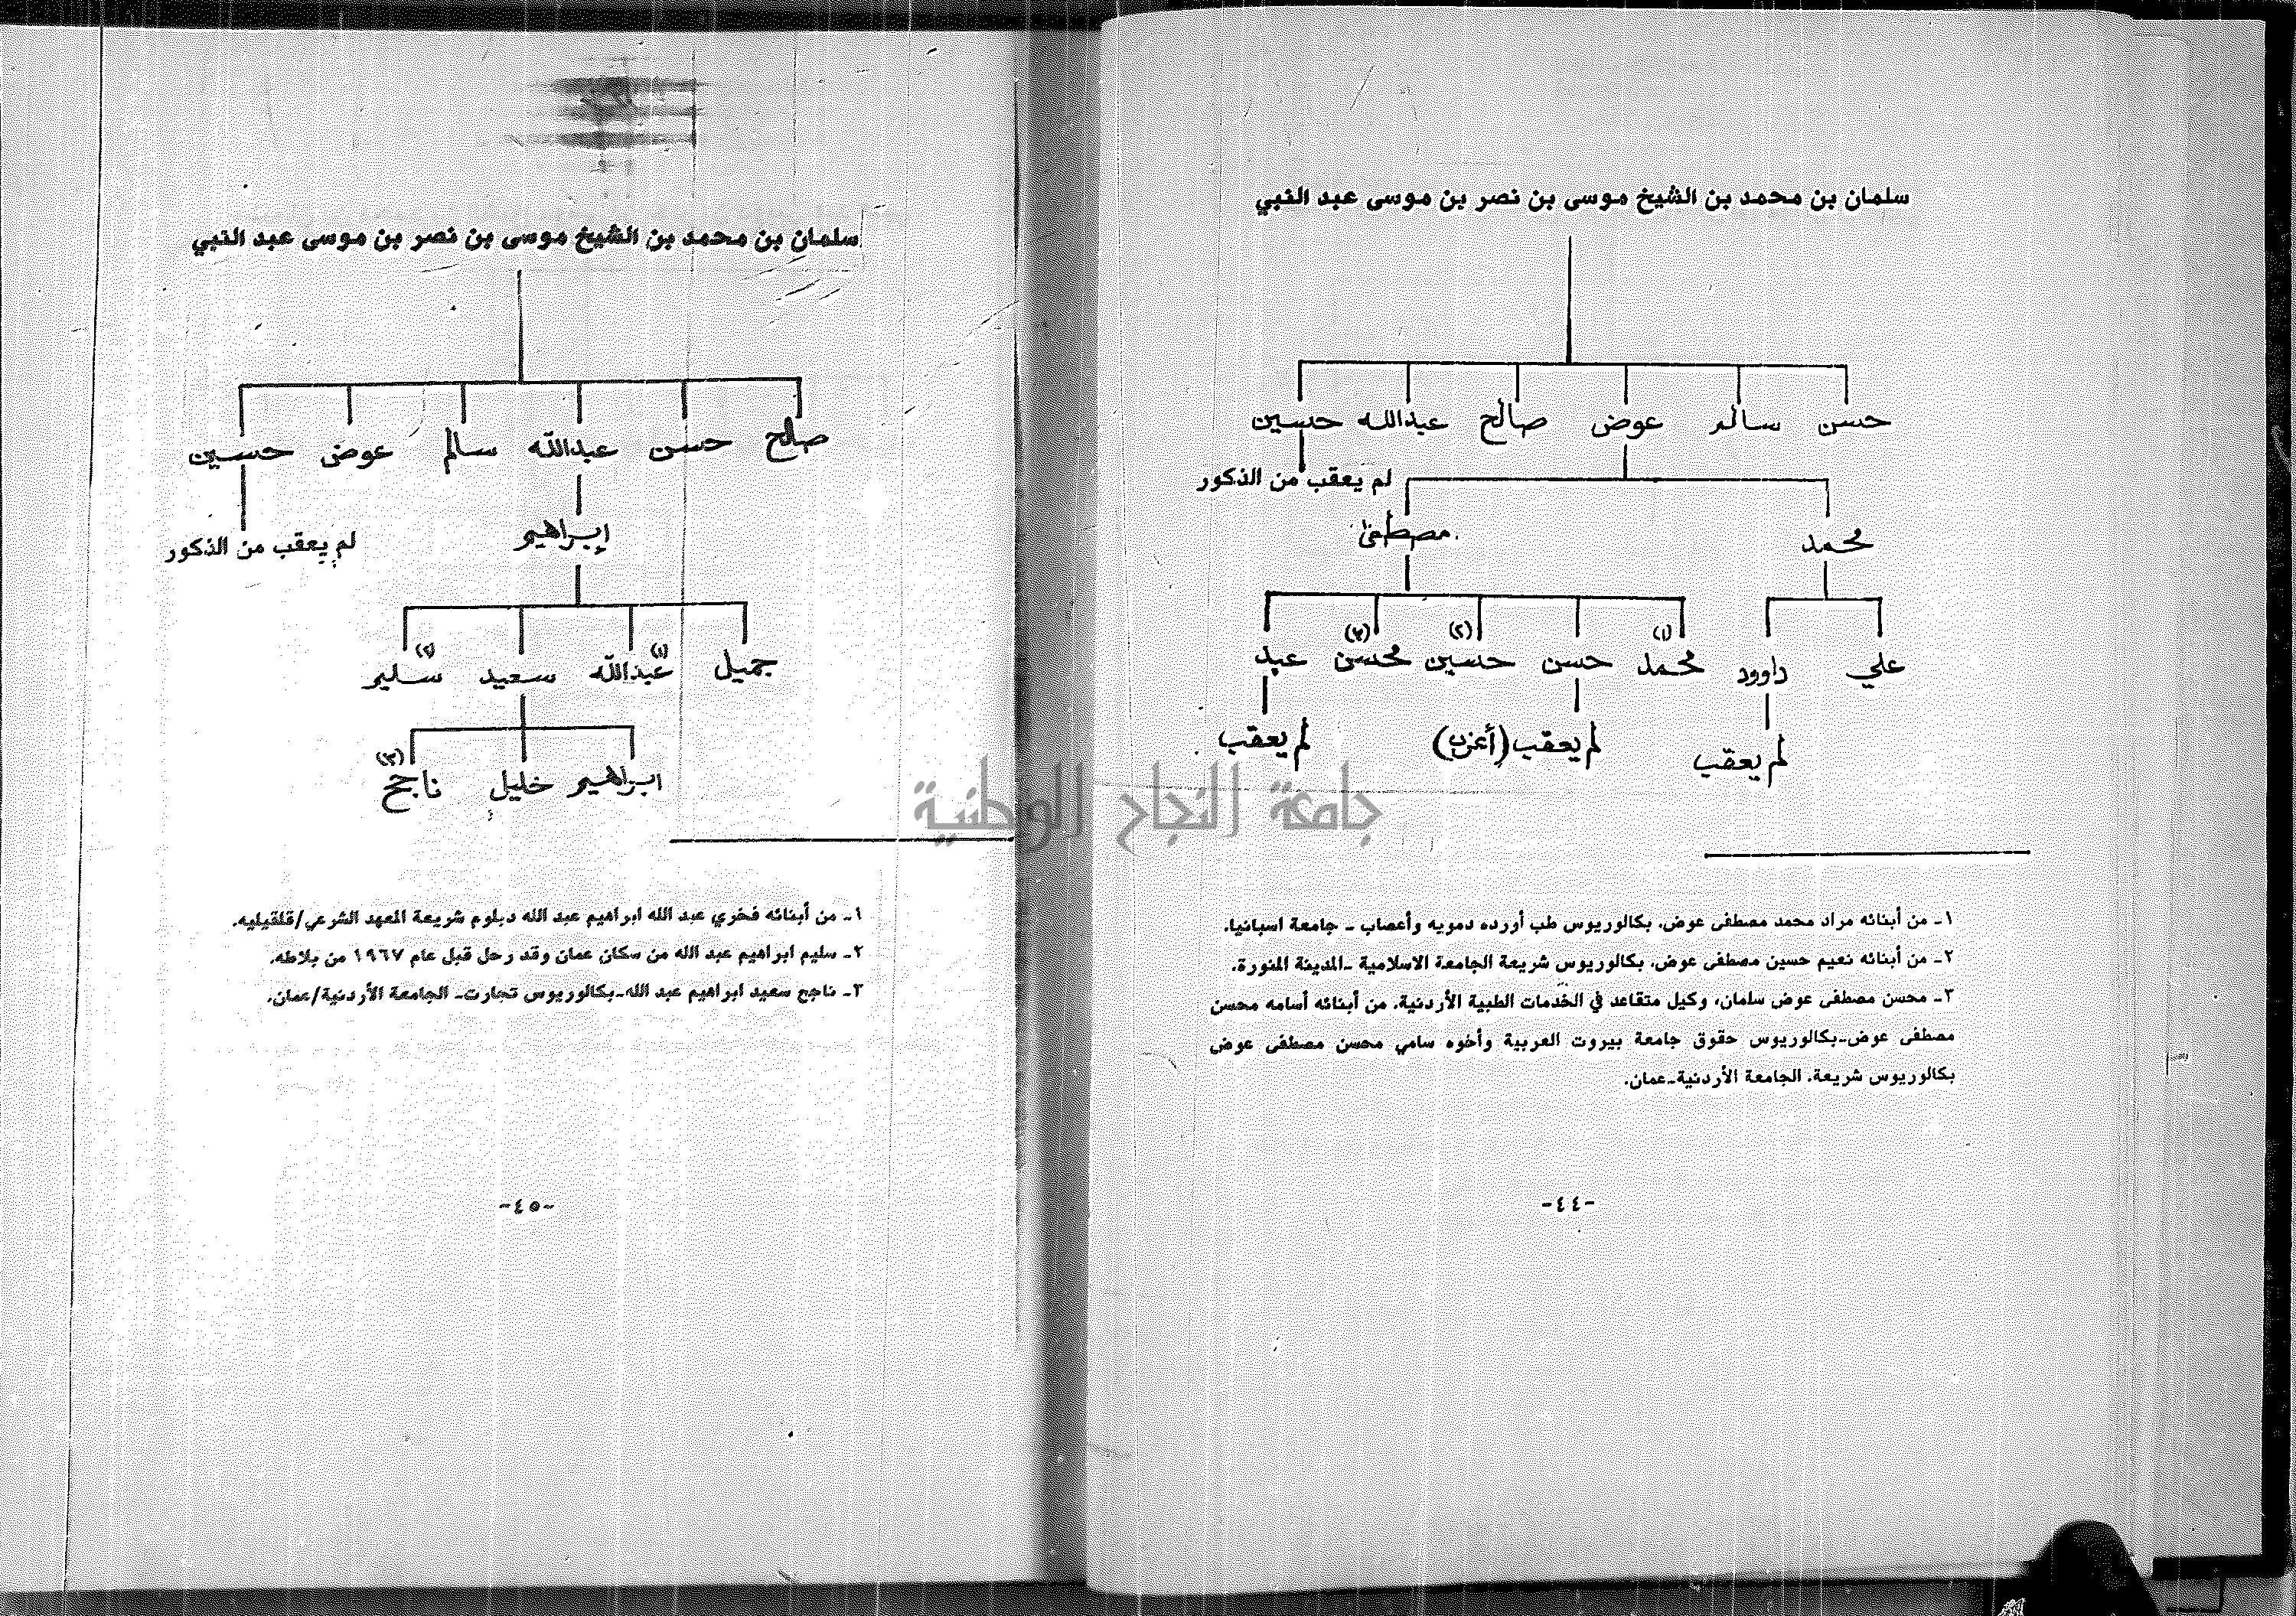 سلمان بن محمد بن الشيخ موسى بن نصر بن موسى عبد النبي
حسن سالم عوض صالح عبدالله حسين
لم يعقب من الذكور
محمد مصطفى
(١) (٢) (٣)
علي داوود محمد حسن حسين محسن عبد
لم يعقب لم يعقب (أعزب) لم يعقب
١ـ من أبنائه مراد محمد مصطفى عوض. بكالوريوس طب أورده دمويه وأعصاب ـ جامعة اسبانيا.
٢ـ من أبنائه نعيم حسين مصطفى عوض. بكالوريوس شريعة الجامعة الاسلامية ـالمدينة المنورة.
٣ـ محسن مصطفى عوض سلمان، وكيل متقاعد في الخدمات الطبية الأردنية. من أبنائه أسامه محسن
مصطفى عوض-بكالوريوس حقوق جامعة بيروت العربية وأخوه سامي محسن مصطفى عوض
بكالوريوس شريعة. الجامعة الأردنية-عمان.
-٤٤-
سلمان بن محمد بن الشيخ موسى بن نصر بن موسى عبد النبي
صالح حسن عبدالله سالم عوض حسين
إبراهيم
لم يعقب من الذكور
(١) (٢)
جميل عبدالله سعيد سليم
(٣)
ابراهيم خليل ناجح
١ـ من أبنائه فخري عبد الله ابراهيم عبد الله دبلوم شريعة المعهد الشرعي/قلقيليه.
٢ـ سليم ابراهيم عبد الله من سكان عمان وقد رحل قبل عام ١٩٦٧ من بلاطه.
٣ـ ناجح سعيد ابراهيم عبد الله-بكالوريوس تجارت- الجامعة الأردنية/عمان.
-٤٥-
جامعة النجاح الوطنية